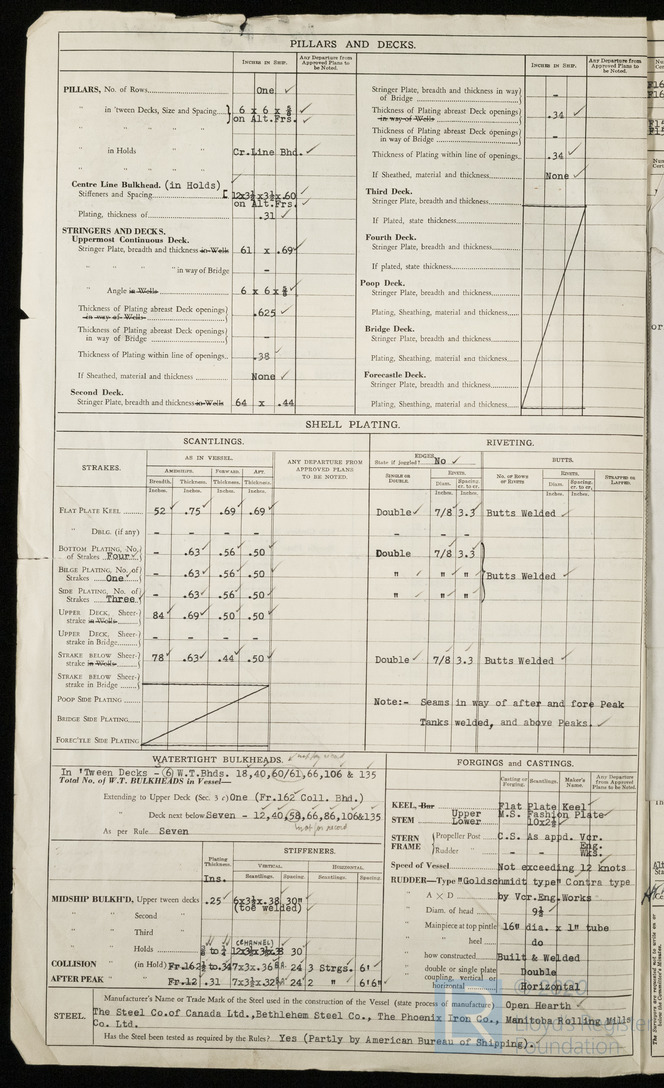 PILLARS AND DECKS.
INCHES IN SHIP.
Any Departure from Approved Plans to be Noted.
PILLARS, No. of Rows One ✓
" in 'tween Decks, Size and Spacing 6 x 6 x 5/8 ✓
on Alt.Frs.
" in Holds Cr.Line Bhd. ✓
Centre Line Bulkhead. (in Holds)
Stiffeners and Spacing [ 12x3½x3½x.60
on Alt.Frs.
Plating, thickness of .31 ✓
STRINGERS AND DECKS.
Uppermost Continuous Deck.
Stringer Plate, breadth and thickness in Wells 61 x .69 ✓
" " " in way of Bridge -
" Angle in Wells 6 x 6 x 5/8 ✓
Thickness of Plating abreast Deck openings in way of Wells .625 ✓
Thickness of Plating abreast Deck openings in way of Bridge -
Thickness of Plating within line of openings .38 ✓
If Sheathed, material and thickness None ✓
Second Deck.
Stringer Plate, breadth and thickness in Wells 64 x .44
INCHES IN SHIP.
Any Departure from Approved Plans to be Noted.
Stringer Plate, breadth and thickness in way of Bridge -
Thickness of Plating abreast Deck openings in way of Wells .34 ✓
Thickness of Plating abreast Deck openings in way of Bridge -
Thickness of Plating within line of openings .34 ✓
If Sheathed, material and thickness None ✓
Third Deck.
Stringer Plate, breadth and thickness
If Plated, state thickness
Fourth Deck.
Stringer Plate, breadth and thickness
If plated, state thickness
Poop Deck.
Stringer Plate, breadth and thickness
Plating, Sheathing, material and thickness
Bridge Deck.
Stringer Plate, breadth and thickness
Plating, Sheathing, material and thickness
Forecastle Deck.
Stringer Plate, breadth and thickness
Plating, Sheathing, material and thickness
SHELL PLATING.
SCANTLINGS.
RIVETING.
STRAKES.
AS IN VESSEL.
AMIDSHIPS. FORWARD. AFT.
Breadth. Thickness. Thickness. Thickness.
Inches. Inches. Inches. Inches.
ANY DEPARTURE FROM APPROVED PLANS TO BE NOTED.
EDGES.
State if joggled? No ✓
SINGLE OR DOUBLE.
RIVETS.
Diam. Spacing cr. to cr.
Inches. Inches.
BUTTS.
NO. OF ROWS OF RIVETS
RIVETS.
Diam. Spacing cr. to cr.
Inches. Inches.
STRAPPED OR LAPPED.
FLAT PLATE KEEL 52 .75 .69 .69 Double 7/8 3.3 Butts Welded ✓
" DBLG. (if any) - - - - - - -
BOTTOM PLATING, No. of Strakes Four - .63 .56 .50 Double 7/8 3.3
BILGE PLATING, No. of Strakes One - .63 .56 .50 " " " Butts Welded ✓
SIDE PLATING, No. of Strakes Three - .63 .56 .50 " " "
UPPER DECK, Sheer-strake in Wells 84 .69 .50 .50
UPPER DECK, Sheer-strake in Bridge - - - -
STRAKE BELOW Sheer-strake in Wells 78 .63 .44 .50 Double 7/8 3.3 Butts Welded ✓
STRAKE BELOW Sheer-strake in Bridge
POOP SIDE PLATING
BRIDGE SIDE PLATING
FOREC'TLE SIDE PLATING
Note:- Seams in way of after and fore Peak
Tanks welded, and above Peaks. ✓
WATERTIGHT BULKHEADS.
In 'Tween Decks - (6) W.T.Bhds. 18,40,60/61,66,106 & 135
Total No. of W.T. BULKHEADS in Vessel—
Extending to Upper Deck (Sec. 3 c) One (Fr.162 Coll. Bhd.)
" Deck next below Seven - 12,40,58,66,86,106&135
As per Rule Seven
Plating Thickness
Ins.
STIFFENERS.
VERTICAL. HORIZONTAL.
Scantlings. Spacing. Scantlings. Spacing.
MIDSHIP BULKH'D, Upper tween decks .25 6x3½x.38 30"
(toe welded)
" " Second "
" " Third "
" " Holds 12x3½x3½x.38 30
(CHANNEL)
COLLISION " (in Hold) Fr.162 to.34 7x3x.36 24 3 Strgs. 6'
AFTER PEAK " " Fr.12 .31 7x3½x.32 24 2 " 6'6"
FORGINGS and CASTINGS.
Casting or Forging.
Scantlings.
Maker's Name.
Any Departure from Approved Plans to be Noted.
KEEL, Bar Flat Plate Keel
STEM Upper M.S. Fashion Plate
Lower 10x2½
STERN FRAME { Propeller Post C.S. As appd. Vcr. Eng. Wks.
Rudder " - -
Speed of Vessel Not exceeding 12 knots
RUDDER—Type "Goldschmidt type" Contra type
" A X D by Vcr.Eng.Works
" Diam. of head 9½
" Mainpiece at top pintle 16" dia. x 1" tube
" " heel do
" how constructed Built & Welded
" double or single plate Double
" coupling, vertical or horizontal Horizontal
STEEL.
Manufacturer's Name or Trade Mark of the Steel used in the construction of the Vessel (state process of manufacture) Open Hearth ✓
The Steel Co.of Canada Ltd.,Bethlehem Steel Co., The Phoenix Iron Co., Manitoba Rolling Mills
Co. Ltd.
Has the Steel been tested as required by the Rules? Yes (Partly by American Bureau of Shipping).
Lloyd's Register
Foundation